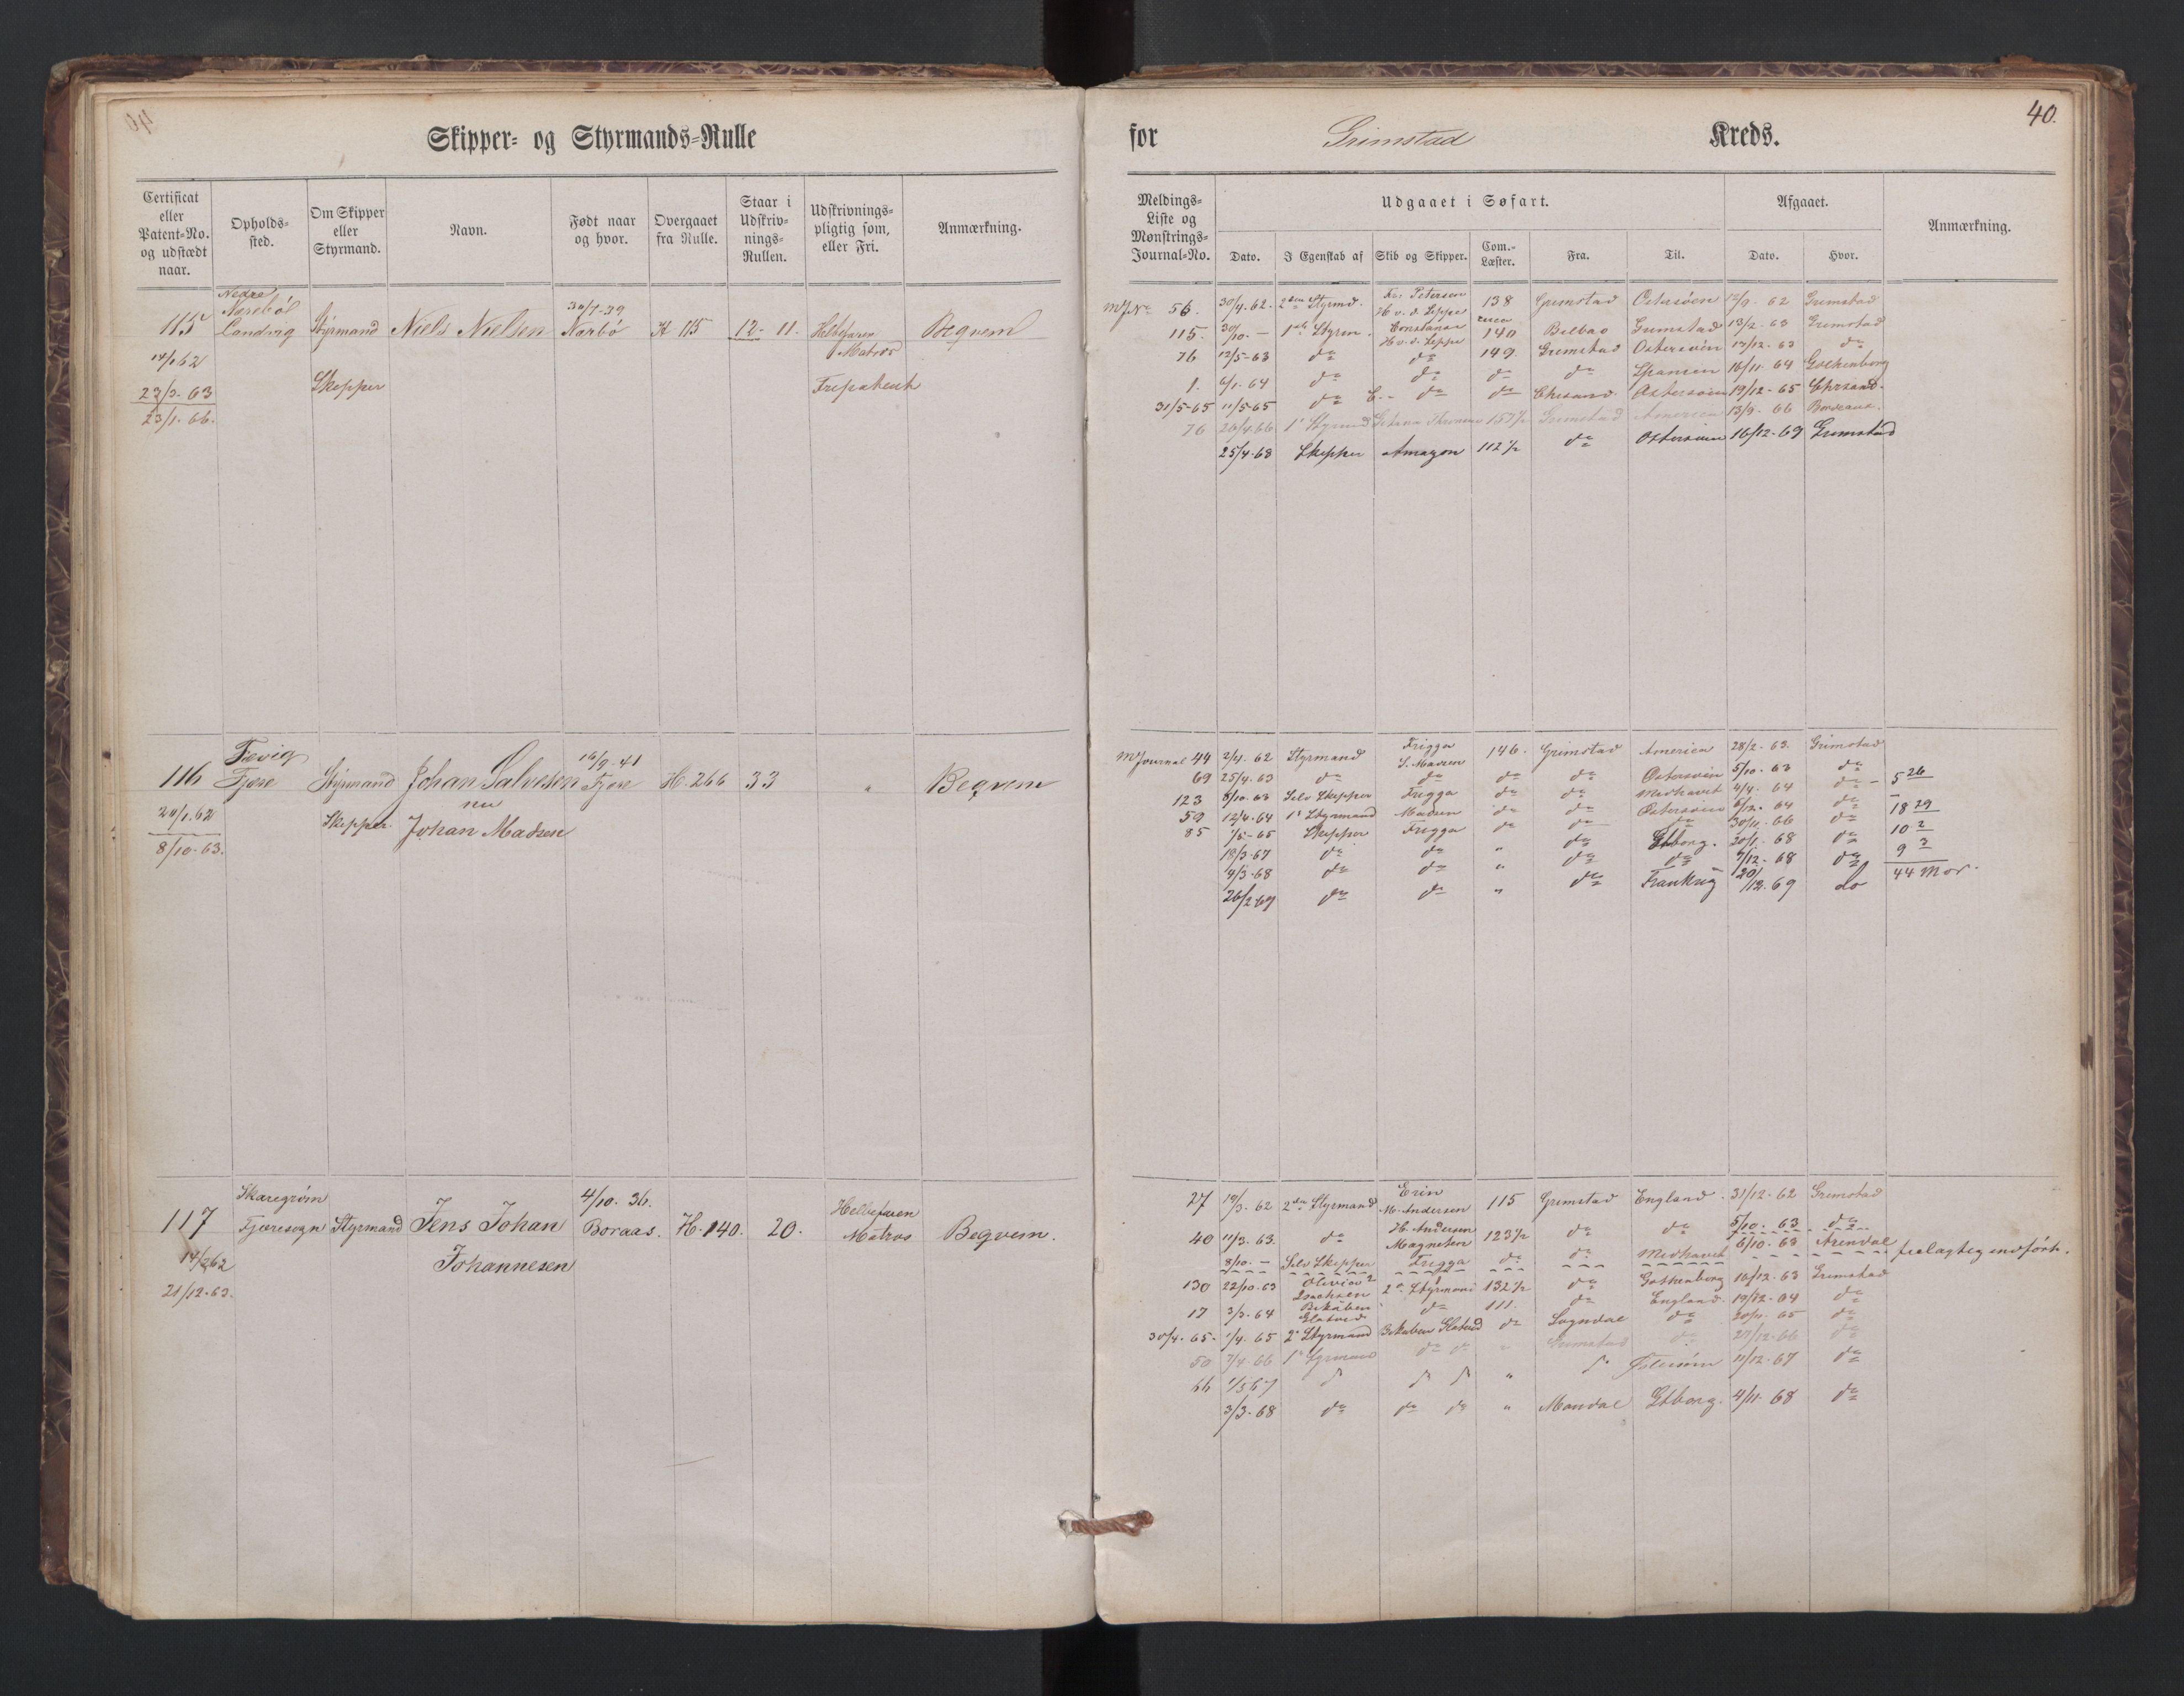 40.
Skipper- og Styrmands-Rulle for Grimstad Kreds.
Certificat eller Patent-No. og udstædt naar.
Opholds-sted.
Om Skipper eller Styrmand.
Navn.
Født naar og hvor.
Overgaaet fra Rulle.
Staar i Udskriv-nings-Rullen.
Udskrivnings-pligtig som, eller Fri.
Anmærkning.
Meldings-Liste og Mønstrings-Journal-No.
Udgaaet i Søfart.
Dato.
I Egenskab af
Skib og Skipper.
Com.-Læster.
Fra.
Til.
Afgaaet.
Dato.
Hvor.
Anmærkning.
Nedre
30/7-39
115 Landvig Styrmand Niels Nielsen Narbø K 115 12- 11. Beqvem
Matros
23/3-63 Skipper Fripatent
23/1-66.
56. 30/4-62. 2den Styrmd. Petersen 138 Grimstad Østersøen 62 Grimstad
115. 30/10 - 1ste Styrm. Constance 140 Bilbao Grimstad 13/2-63 Grimstad
76 12/5-63 do do 149. Grimstad Østersøen 17/12-63 do
1. 6/1-64 do do do do Spanien 16/11-64 Gothenborg
31/5-65 11/5-65 do do do Chrsand. Østersøen 19/12-65 Chrsand.
76 26/4-66 1e Styrmand 157½ Grimstad America 13/9-66 Bordeaux.
25/4-68 Skipper Amazon 112½ do Østersøen 16/12-69 Grimstad
Fævig 16/9-41
116 Fjære Styrmand Johan Salvesen Fjære H. 266 33 " Beqvem
nu
20/1.62 Skipper. Johan Madsen
8/10-63.
M Journal 44 2/4-62 Styrmand Frigga S. Madsen 146. Grimstad America 28/2-63. Grimstad
69 25/4-63 do do do do Østersøen 5/10-63 do 5 26
123 8/10-63 Selv Skipper Frigga do do Medhavet 4/4-64 do
59 12/4-64 1e Styrmand Madsen do do Østersøen 64 do 18 29
85 1/5-65 Skipper Frigga do do do 30/11-66 do 10 2
18/3-67 do do " do Gtborg. 20/1-68 do 9 3
9/3-68 do do " do do 7/12-68 do 44 Mdr.
26/2-69 do do " do Frankrig 20/12-69 do
Skaregrøm 4/10. 36. Helbefaren
117 Fjæresogn Styrmand Jens Johan Boraas. H. 140. 20. Matros Beqvem.
14/2 62 Johannesen
21/12-63.
27 19/3-62 2den Styrmand Erin M. Andersen 115 Grimstad England. 31/12-62 Grimstad
40 11/3-63. do H. Andersen Magneten 123½ do do 5/10-63 do
8/10 - Selv Skipper Frigga do do Medhavet 6/10-63 Arendal feilagtig indført.
130 22/10-63 Olivia Isachsen 2en Styrmand 132½ do Gothenborg 16/12-63 Grimstad
17 3/3-64 do 111. do England. 19/12-64 do
30/4-65- 1/4-65 2e Styrmand do Sogndal do 20/11-65 do
50 7/4-66 1e Styrmand do do " Grimstad do 27/12-66 do
66 1/5 67 do do do " do Østersøen 11/12-67 do
3/3-68 do do do " Mandal Gtborg. 4/11-68 do